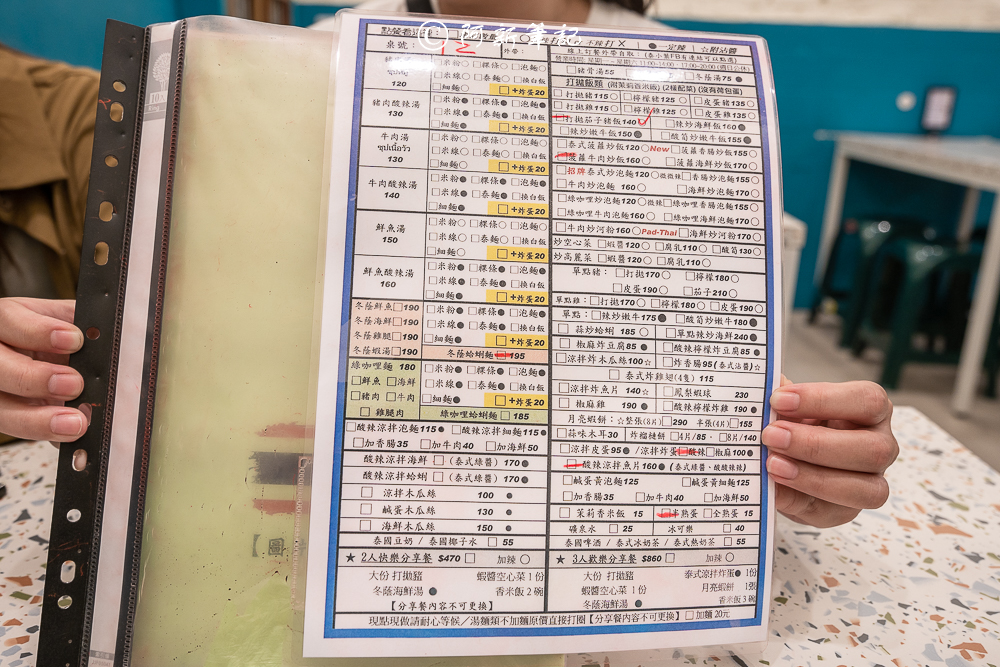 © 阿新筆記
桌號: 12 外帶:
線上訂餐外帶自取 (泰小葉FB有連結可以點選)
120
□米粉○ □粿條○ □泡麵○
□米線○ □泰麵○ □換白飯
□細麵○ □+炸蛋20
豬肉酸辣湯
130
□米粉● □粿條● □泡麵●
□米線● □泰麵● □換白飯
□細麵● □+炸蛋20
牛肉湯
ซุปเนื้อวัว
130
□米粉○ □粿條○ □泡麵○
□米線○ □泰麵○ □換白飯
□細麵○ □+炸蛋20
牛肉酸辣湯
140
□米粉● □粿條● □泡麵●
□米線● □泰麵● □換白飯
□細麵● □+炸蛋20
鮮魚湯
150
□米粉○ □粿條○ □泡麵○
□米線○ □泰麵○ □換白飯
□細麵○ □+炸蛋20
鮮魚酸辣湯
160
□米粉● □粿條● □泡麵●
□米線● □泰麵● □換白飯
□細麵● □+炸蛋20
冬蔭鮮魚□190
冬蔭海鮮□190
冬蔭雞腿□190
冬蔭蝦湯□190
□米粉● □粿條● □泡麵●
□米線● □泰麵● □換白飯
□細麵● □+炸蛋20
冬蔭蛤蜊麵□195
綠咖哩麵 180
□鮮魚 □海鮮
□豬肉 □牛肉
□ 雞腿肉
□米粉● □粿條● □泡麵●
□米線● □泰麵● □換白飯
□細麵● □+炸蛋20
綠咖哩蛤蜊麵 □ 185
□酸辣涼拌泡麵115● □酸辣涼拌細麵115●
□加香腸35 □加牛肉40 □加海鮮50
酸辣涼拌海鮮 □ (泰式綠醬) 170●
酸辣涼拌蛤蜊 □ (泰式綠醬) 170●
□ 涼拌木瓜絲 100 ●
□ 鹹蛋木瓜絲 130 ●
□ 海鮮木瓜絲 150 ●
泰國豆奶 / 泰國椰子水 □ 55
★ 2人快樂分享餐 $470 □ 加辣 ○
大份 打拋豬 蝦醬空心菜 1 份
冬蔭海鮮湯● 香米飯 2 碗
【分享餐內容不可更換】
□豬骨湯55 □冬蔭湯75●
打拋飯類 (附茉莉香米飯) (2樣配菜) (沒有荷包蛋)
□打拋豬115○ □檸檬豬125○ □皮蛋豬135○
□打拋雞115○ □檸檬雞125○ □皮蛋雞135○
□打拋茄子豬飯140○ □辣炒海鮮飯160●
□辣炒嫩牛飯150● □酸筍炒嫩牛飯155●
□泰式菠蘿炒飯120○New □菠蘿香腸炒飯155○
□菠蘿牛肉炒飯160○ □菠蘿海鮮炒飯170○
□招牌泰式炒泡麵120○微微辣 □香腸炒泡麵155○
□牛肉炒泡麵 160○ □海鮮炒泡麵170○
□綠咖哩炒泡麵120○微辣 □綠咖哩香腸泡麵155○
□綠咖哩牛肉泡麵160○ □綠咖哩海鮮泡麵170○
□牛肉炒河粉160○ Pad-Thai □海鮮炒河粉170○
炒空心菜 □蝦醬120○ □腐乳110○ □酸筍130○
炒高麗菜 □蝦醬120○ □腐乳110○
單點豬: □打拋170○ □檸檬180○
□皮蛋190○ □茄子210○
單點雞: □打拋170○ □檸檬180○ □皮蛋190○
單點: □辣炒嫩牛175● □酸筍炒嫩牛180●
□ 蒜炒蛤蜊 185 ○ □單點辣炒海鮮240●
□ 椒麻炸豆腐85 ● □酸辣檸檬炸豆腐85●
□涼拌炸木瓜絲100☆ □炸香腸95(泰式沾醬)☆
□ 泰式炸雞翅(4隻) 115
□涼拌炸魚片 140☆ □鳳梨蝦球 230
□ 椒麻雞 190 ● □酸辣檸檬炸雞 190●
月亮蝦餅: ☆整張(8片)□290 半張(4片)□155
□蒜味木耳30 炸榴槤餅 □4片/85 ・ □8片/140
□涼拌皮蛋95● /涼拌炸蛋□酸辣□椒麻100●
□酸辣涼拌魚片160● (泰式綠醬、酸酸辣辣)
□鹹蛋黃泡麵125 □鹹蛋黃細麵125
□加香腸35 □加牛肉40 □加海鮮50
□ 茉莉香米飯 15 □半熟蛋□全熟蛋 15
礦泉水 □ 25 冰可樂 □ 40
泰國啤酒 / 泰式冰奶茶 / 泰式熱奶茶 □ 55
★ 3人歡樂分享餐 $860 □ 加辣 ○
大份 打拋豬 泰式涼拌炸蛋● 1份
蝦醬空心菜 1 份 月亮蝦餅 1張
冬蔭海鮮湯● 香米飯 3 碗
現點現做請耐心等候/湯麵類不加麵原價直接打圈【分享餐內容不可更換】 □ 加麵 20元